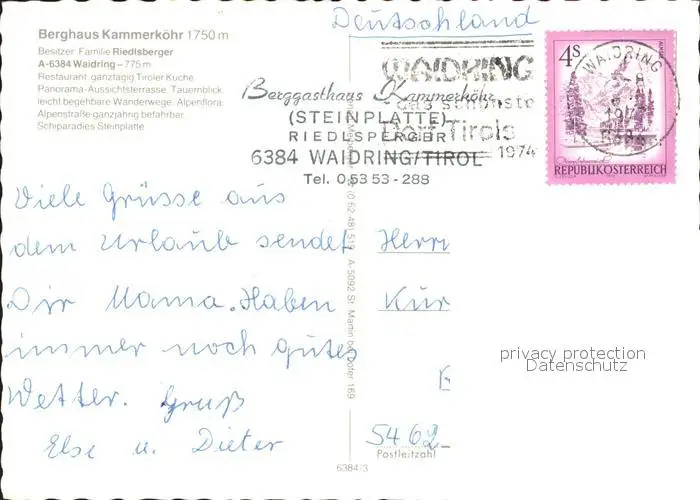 Deutschland
Berghaus Kammerköhr 1750 m
Besitzer: Familie Riedlsberger
A-6384 Waidring – 775 m
Restaurant ganztägig Tiroler Küche.
Panorama-Aussichtsterrasse. Tauernblick.
leicht begehbare Wanderwege. Alpenflora.
Alpenstraße ganzjährig befahrbar.
Schiparadies Steinplatte
WAIDRING
das schönste
Dorf Tirols
1974
4S
WAIDRING
REPUBLIK ÖSTERREICH
Berggasthaus Kammerköhr
(STEINPLATTE)
RIEDLSPERGER
6384 WAIDRING/TIROL
Tel. 0 53 53 - 288
Viele Grüsse aus
dem Urlaub sendet
Dir Mama. Haben
immer noch gutes
Wetter. Gruß
Else u. Dieter
Herrn
Kur
5462
Postleitzahl
A-5092 St. Martin bei Lofer 169
6384/3
privacy protection
Datenschutz